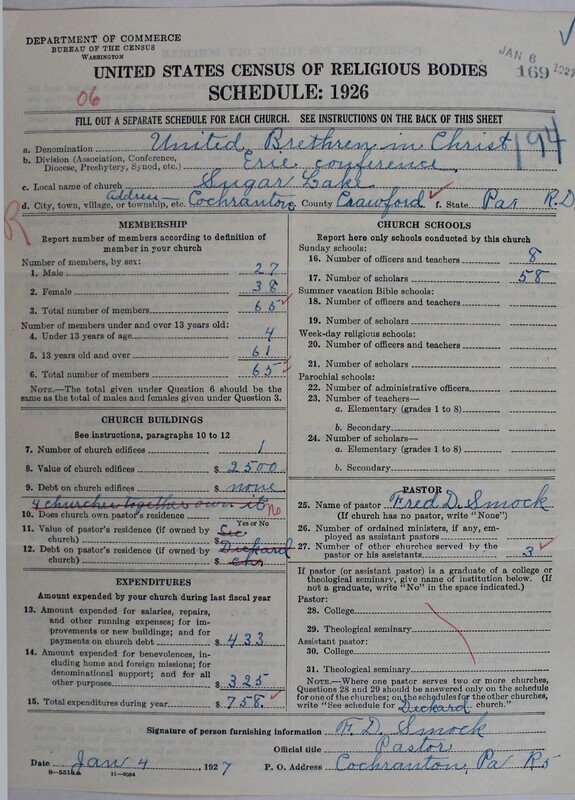 DEPARTMENT OF COMMERCE
BUREAU OF THE CENSUS
WASHINGTON
JAN 6 1927
169
UNITED STATES CENSUS OF RELIGIOUS BODIES
06
SCHEDULE: 1926
FILL OUT A SEPARATE SCHEDULE FOR EACH CHURCH. SEE INSTRUCTIONS ON THE BACK OF THIS SHEET
194
a. Denomination United Brethren in Christ
b. Division (Association, Conference, Diocese, Presbytery, Synod, etc.) Erie conference
c. Local name of church Sugar Lake
d. City, town, village, or township, etc. Address— Cochranton County Crawford f. State Pa. R.D.
R
MEMBERSHIP
Report number of members according to definition of member in your church
Number of members, by sex:
1. Male 27
2. Female 38
3. Total number of members 65
Number of members under and over 13 years old:
4. Under 13 years of age 4
5. 13 years old and over 61
6. Total number of members 65
NOTE.—The total given under Question 6 should be the same as the total of males and females given under Question 3.
CHURCH BUILDINGS
See instructions, paragraphs 10 to 12
7. Number of church edifices 1
8. Value of church edifices $ 2500
9. Debt on church edifices $ none
4 churches together own it
10. Does church own pastor's residence no
Yes or No
11. Value of pastor's residence (if owned by church) $ See
12. Debt on pastor's residence (if owned by church) $ Deckard Chr.
EXPENDITURES
Amount expended by your church during last fiscal year
13. Amount expended for salaries, repairs, and other running expenses; for improvements or new buildings; and for payments on church debt $ 433
14. Amount expended for benevolences, including home and foreign missions; for denominational support; and for all other purposes $ 325
15. Total expenditures during year $ 758.
CHURCH SCHOOLS
Report here only schools conducted by this church
Sunday schools:
16. Number of officers and teachers 8
17. Number of scholars 58
Summer vacation Bible schools:
18. Number of officers and teachers
19. Number of scholars
Week-day religious schools:
20. Number of officers and teachers
21. Number of scholars
Parochial schools:
22. Number of administrative officers
23. Number of teachers—
a. Elementary (grades 1 to 8)
b. Secondary
24. Number of scholars—
a. Elementary (grades 1 to 8)
b. Secondary
PASTOR
25. Name of pastor Fred D. Smock
(If church has no pastor, write "None")
26. Number of ordained ministers, if any, employed as assistant pastors
27. Number of other churches served by the pastor or his assistants 3
If pastor (or assistant pastor) is a graduate of a college or theological seminary, give name of institution below. (If not a graduate, write "No" in the space indicated.)
Pastor:
28. College
29. Theological seminary
Assistant pastor:
30. College
31. Theological seminary
NOTE.—Where one pastor serves two or more churches, Questions 28 and 29 should be answered only on the schedule for one of the churches; on the schedules for the other churches, write "See schedule for Deckard church."
Signature of person furnishing information F. D. Smock
Official title Pastor
Date Jan 4, 1927 P. O. Address Cochranton, Pa R5
8-5518a 11-9064